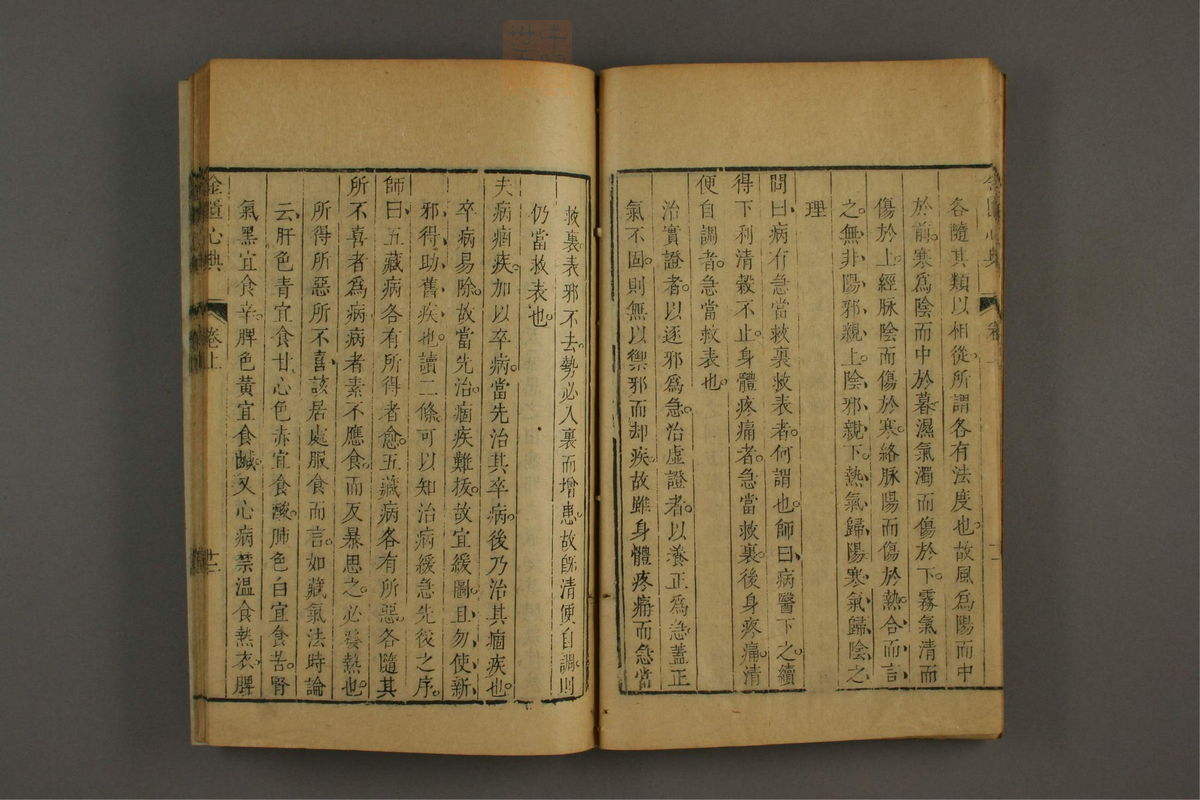 各隨其類以相從所謂各有法度也故風為陽而中
於前寒為陰而中於暮濕氣濁而傷於下霧氣清而
傷於上經脉陰而傷於寒絡脉陽而傷於熱合而言
之無非陽邪親上陰邪親下熱氣歸陽寒氣歸陰之
理
問曰病有急當救裏救表者何謂也師曰病醫下之續
得下利清穀不止身體疼痛者急當救裏後身疼痛清
便自調者急當救表也
治實證者以逐邪為急治虛證者以養正為急蓋正
氣不固則無以禦邪而却疾故雖身體疼痛而急當
救裏表邪不去勢必入裏而增患故旣清便自調則
仍當救表也
夫病痼疾加以卒病當先治其卒病後乃治其痼疾也
卒病易除故當先治痼疾難拔故宜緩圖且勿使新
邪得助舊疾也讀二條可以知治病緩急先後之序
師曰五藏病各有所得者愈五藏病各有所惡各隨其
所不喜者為病病者素不應食而反暴思之必發熱也
所得所惡所不喜該居處服食而言如藏氣法時論
云肝色青宜食甘心色赤宜食酸肺色白宜食苦腎
氣黑宜食辛脾色黃宜食鹹又心病禁溫食熱衣脾
金匱心典
卷上